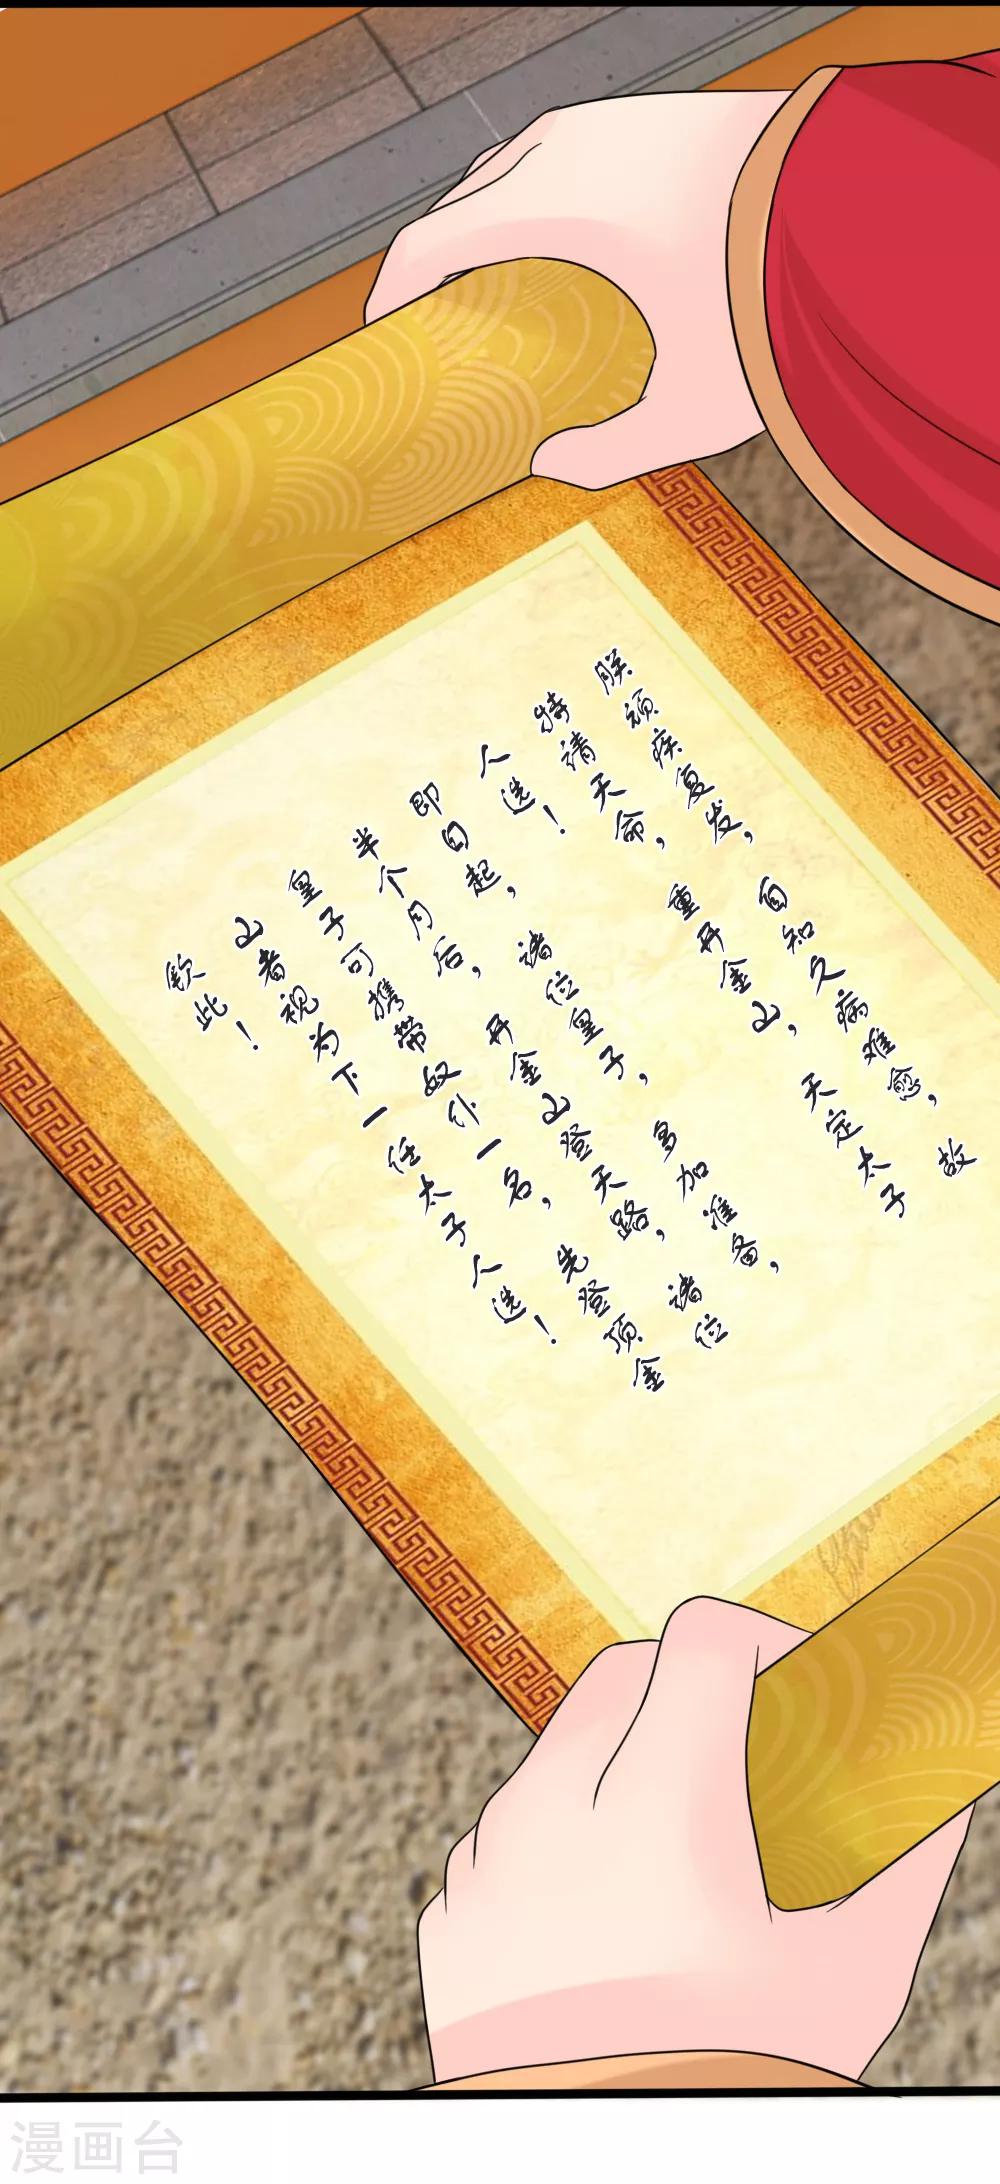 朕顽疾复发，自知久病难愈，故
特请天命，重开金山，天定太子
人选！
即日起，诸位皇子，多加准备，
半个月后，开金山登天路，诸位
皇子可携带奴仆一名，先登顶金
山者视为下一任太子人选！
钦此！
漫画台